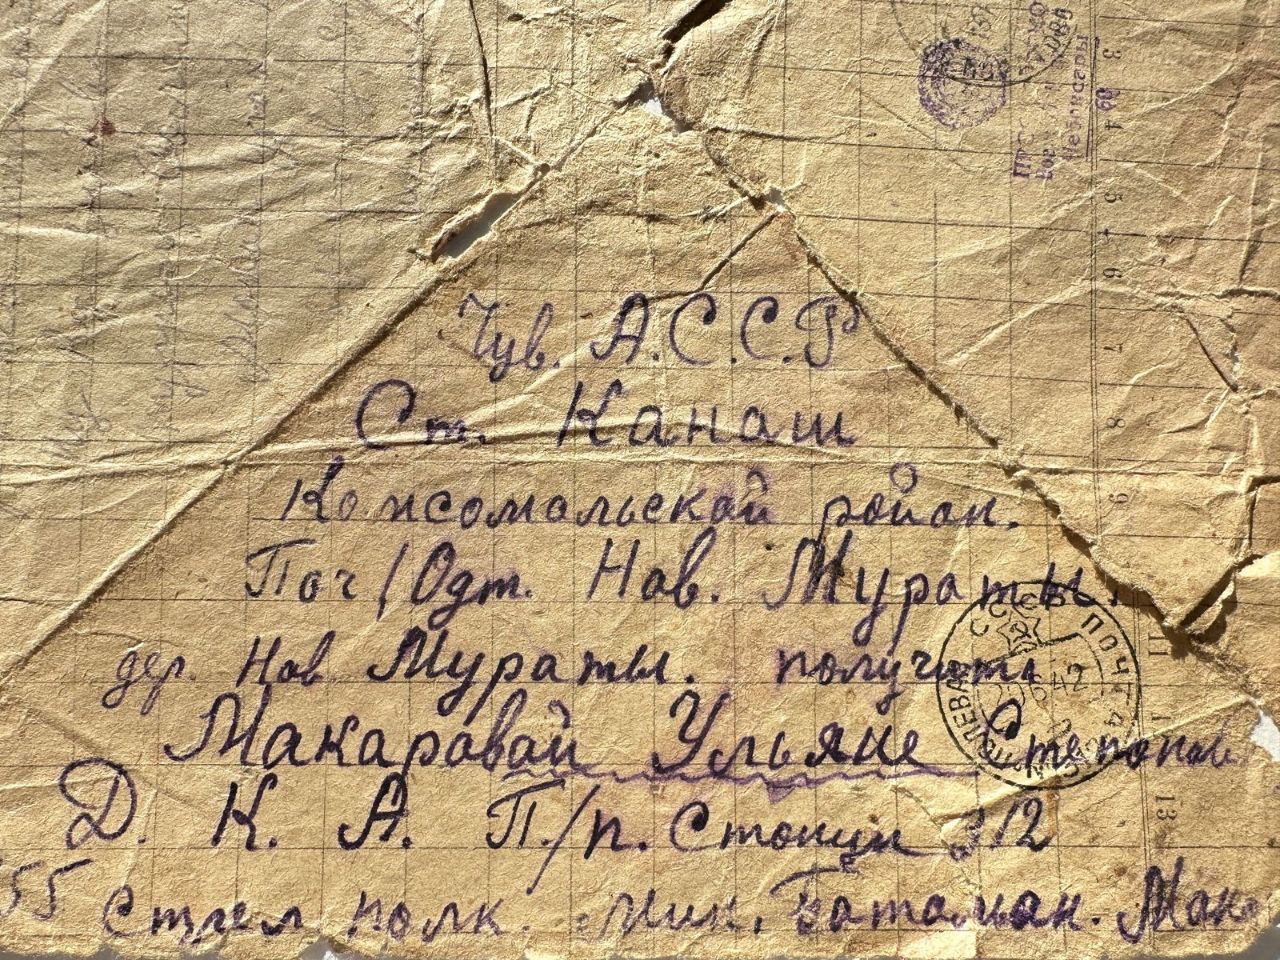 Чув. А.С.С.Р
Ст. Канаш
Комсомольской ройон.
Поч/Одт. Нов. Мураты.
дер. Нов Мураты. получить
Макаравай Ульяне Степонов
Д. К. А. П/п. Стонцы 312
55 стрел полк. мин.Ботольон. Мака
СССР ПОЧТА
ПОЛЕВАЯ
6 42
3
4
5
6
7
8
9
11
13